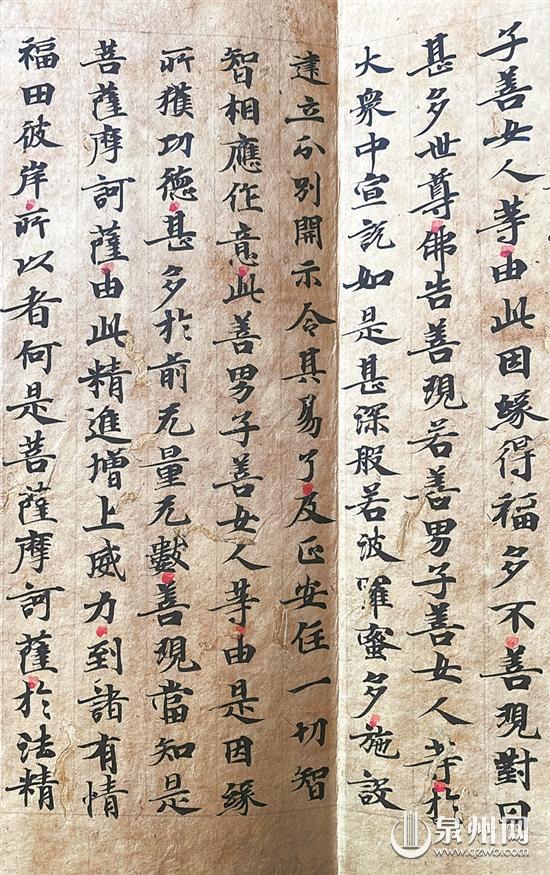 子善女人等由此因緣得福多不善現對曰
甚多世尊佛告善現若善男子善女人等於
大衆中宣說如是甚深般若波羅蜜多施設
建立分別開示令其易了及正安住一切智
智相應作意此善男子善女人等由是因緣
所獲功德甚多於前无量无數善現當知是
菩薩摩訶薩由此精進增上威力到諸有情
福田彼岸所以者何是菩薩摩訶薩於法精
泉州网
www.qzwb.com